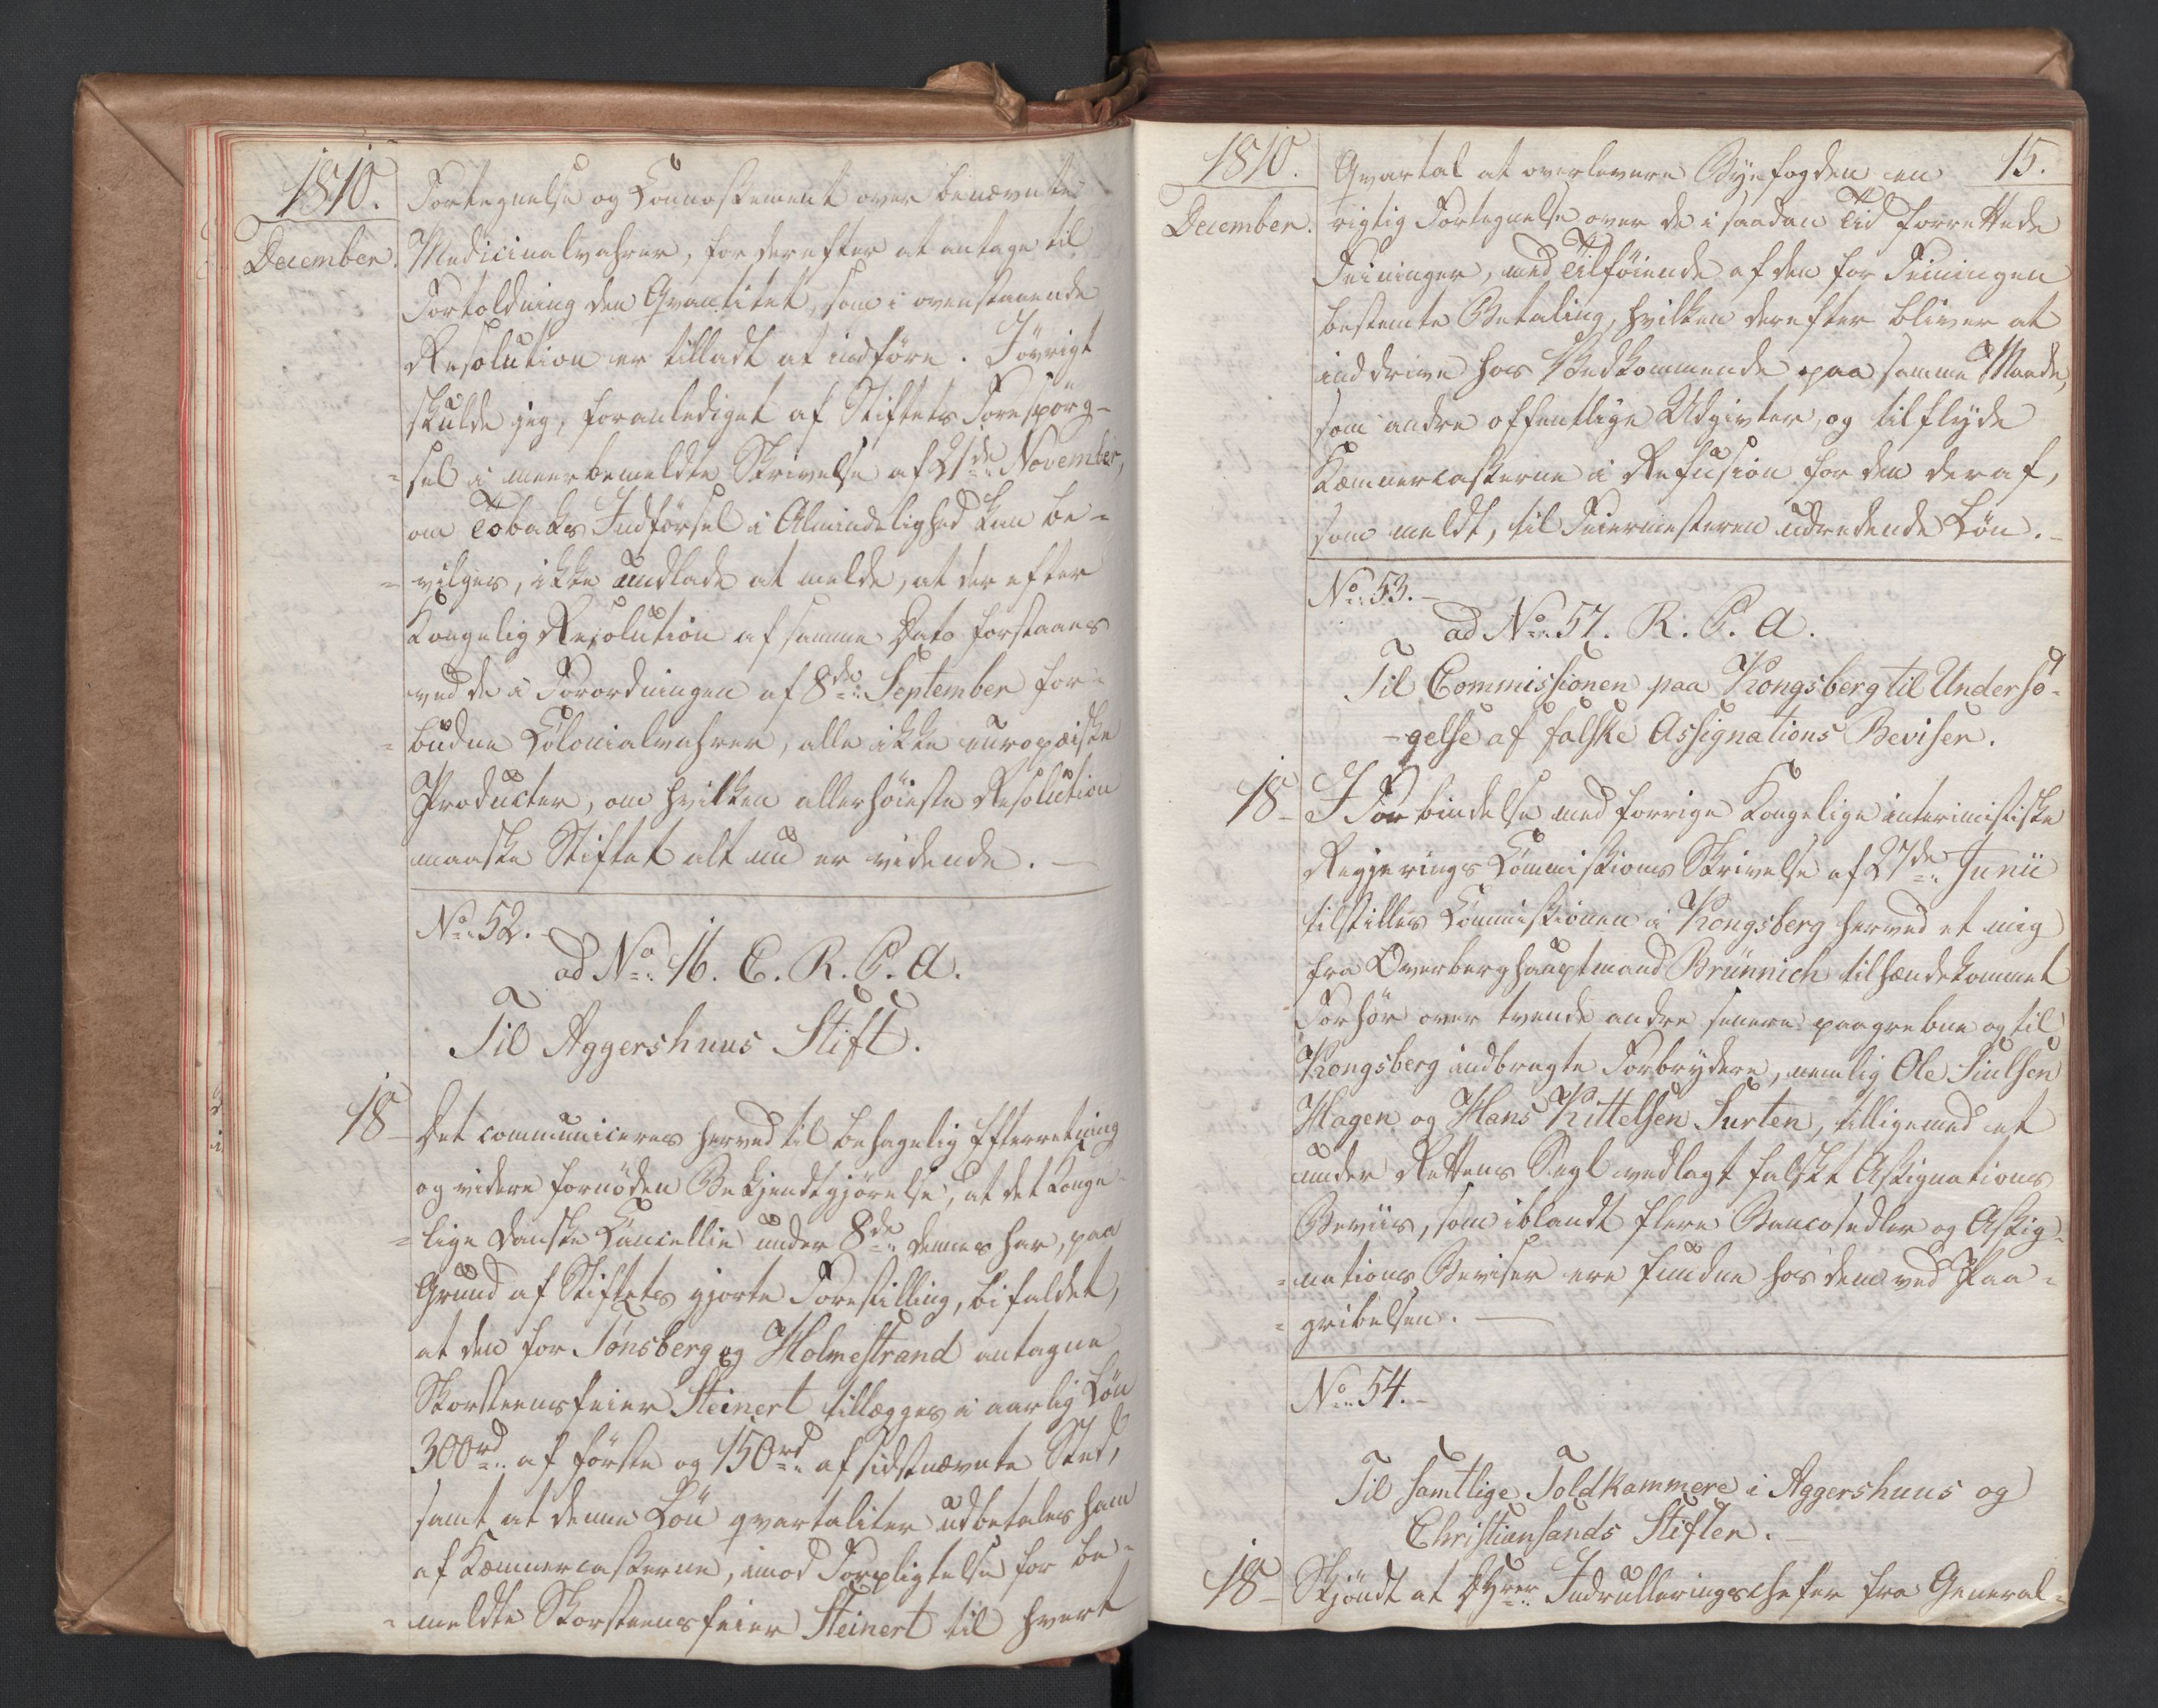 1810.
December.
Fortegnelse og Connossement over benævnte
Medicinalvahrer, for derefter at antage til
Fortoldning den Qvantitet, som i ovenstaaende
Resolution er tilladt at indföre. Jövrigt
skulde jeg, foranlediget af Stiftets Forespörg-
-sel i meerbemeldte Skrivelse af 21de November,
om Tobaks Indförsel i Almindelighed kan be-
-vilges, ikke undlade at melde, at der efter
Kongelig Resolution af samme Dato forstaaes
ved de i Forordningen af 8de September for-
-budne Colonialvahrer, alle ikke europæiske
Producter, om hvilken allerhöieste Resolution
maaske Stiftet alt nu er vidende.
No 52.
ad No 16. C. R. C. A.
Til Aggershuus Stift.
18 Det communiceres herved til behagelig Efterretning
og videre fornöden Bekjendtgjörelse, at det Konge-
-lige danske Cancellie under 8de dennes har, paa
Grund af Stiftets gjorte Forestilling, bifaldet,
at den for Tønsberg og Holmestrand antagne
Skorsteensfeier Steinert tillægges i aarlig Lön
300rd af förste og 150rd af sidstnævnte Sted,
samt at denne Lön qvartaliter udbetales ham
af Kæmnercasserne, imod Forpligtelse for be-
-meldte Skorsteensfeier Steinert til hvert
1810.
December.
15.
Qvartal at overlevere Byefogden en
rigtig Fortegnelse over de i saadan Tid forrettede
Feininger, med Tilföiende af den for Feiningen
bestemte Betaling, hvilken derefter bliver at
inddrive hos Vedkommende paa samme Maade,
som andre offentlige Udgivter, og tilflyde
Kæmnercasserne i Refusion for den deraf,
som meldt, til Feiermesteren udredende Lön.
No 53.
ad No 57. R. C. A.
Til Commissionen paa Kongsberg til Undersø-
-gelse af falske Assignations Beviser.
18 I Forbindelse med forrige Kongelige interimistiske
Regjerings Commissions Skrivelse af 27de Junii
tilstilles Commissionen i Kongsberg herved et mig
fra Overberghauptmand Brünnich tilhændekommet
Forhör over tvende andre senere paagrebne og til
Kongsberg indbragte Forbrydere, nemlig Ole Siulsen
Hagen og Hans Kittelsen Surten, tilligemed et
under Rettens Segl vedlagt falskt Assignations
Beviis, som iblandt flere Bancosedler og Assig-
-nations Beviser ere fundne hos dem ved Paa-
-gribelsen.
No 54.
Til samtlige Toldkammere i Aggershuus og
Christiansands Stifter.
18 Skjöndt at Hrr Indrulleringschefer fra General-